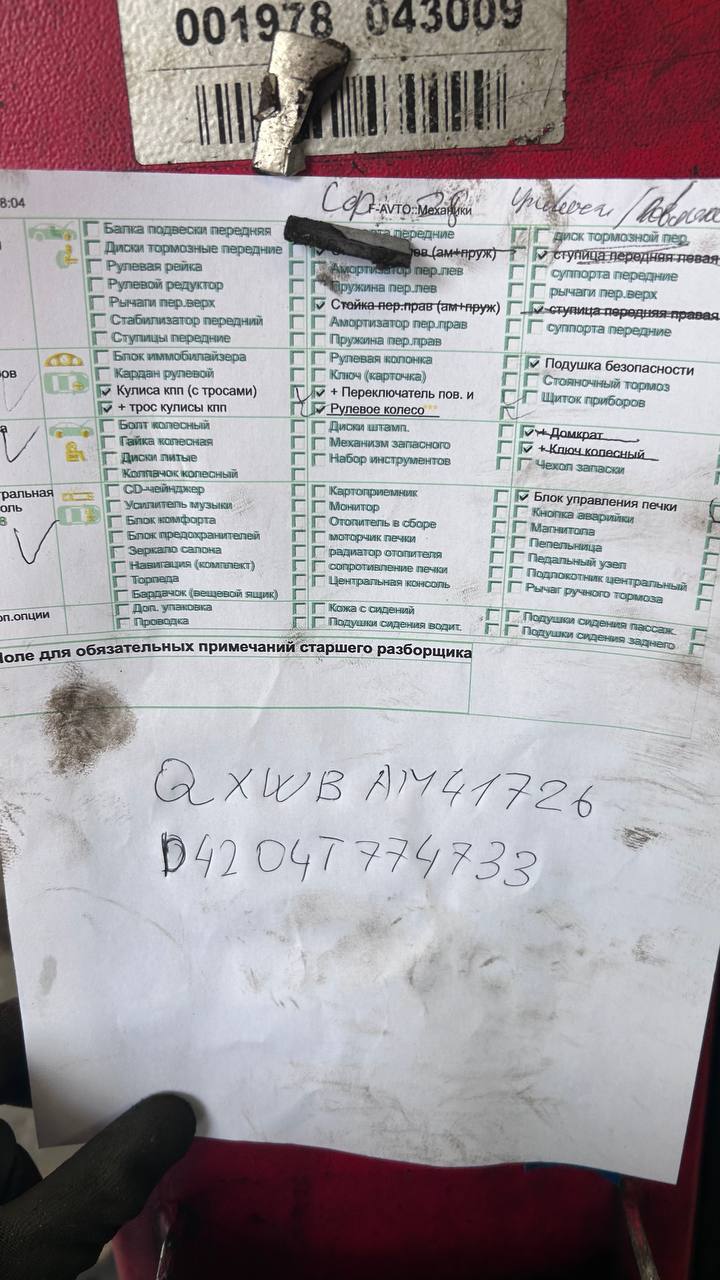 001978 043009
8:04
F-AVTO::Механики
Балка подвески передняя
передние
диск тормозной пер.
Диски тормозные передние
(ам+пруж)
ступица передняя левая
Рулевая рейка
Амортизатор пер.лев
суппорта передние
Рулевой редуктор
Пружина пер.лев
рычаги пер.верх
Рычаги пер.верх
Стойка пер.прав (ам+пруж)
ступица передняя правая
Стабилизатор передний
Амортизатор пер.прав
суппорта передние
Ступицы передние
Пружина пер.прав
Блок иммобилайзера
Рулевая колонка
Подушка безопасности
Кардан рулевой
Ключ (карточка)
Стояночный тормоз
Кулиса кпп (с тросами)
+ Переключатель пов. и
Щиток приборов
+ трос кулисы кпп
Рулевое колесо***
Болт колесный
Диски штамп.
+ Домкрат
Гайка колесная
Механизм запасного
+ Ключ колесный
Диски литые
Набор инструментов
Чехол запаски
Колпачок колесный
CD-чейнджер
Картоприемник
Блок управления печки
Усилитель музыки
Монитор
Кнопка аварийки
Блок комфорта
Отопитель в сборе
Магнитола
Блок предохранителей
моторчик печки
Пепельница
Зеркало салона
радиатор отопителя
Педальный узел
Навигация (комплект)
сопротивление печки
Подлокотник центральный
Торпеда
Центральная консоль
Рычаг ручного тормоза
Бардачок (вещевой ящик)
Доп. упаковка
Кожа с сидений
Подушки сидения пассаж.
Проводка
Подушки сидения водит.
Подушки сидения заднего
оп.опции
Поле для обязательных примечаний старшего разборщика
QXWB AM41726
D4204T774733